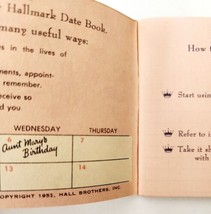 Hallmark Date Book.
many useful ways:
es in the lives of
ments, appoint-
remember.
eceive so
d you
WEDNESDAY THURSDAY
6 7
Aunt Mary's
Birthday
13 14
COPYRIGHT 1952, HALL BROTHERS, INC.
How
Start usin
Refer to i
Take it sh
with